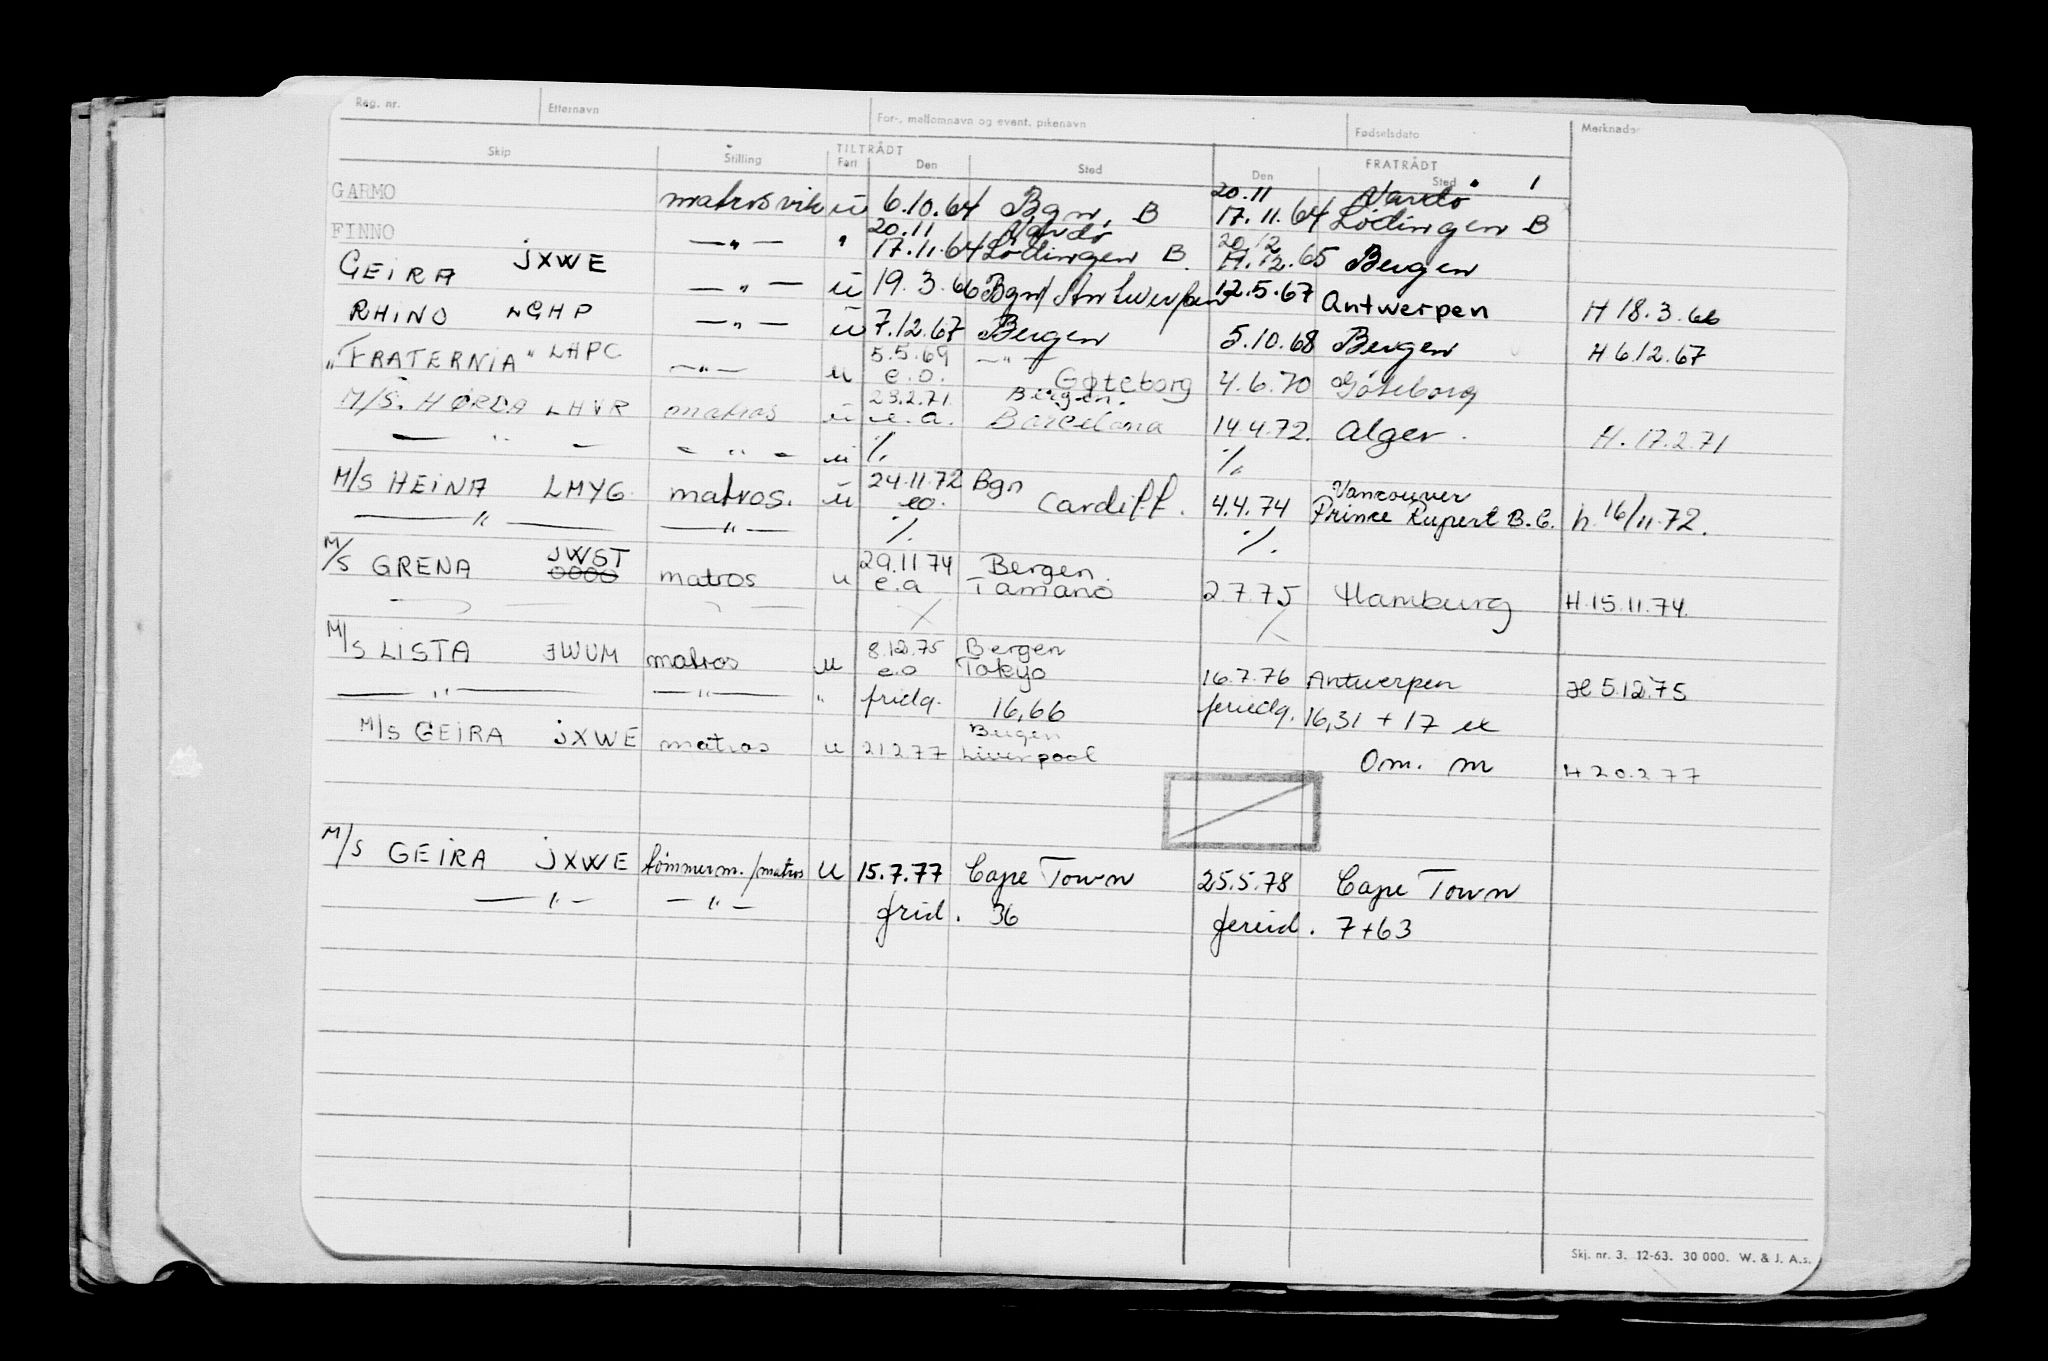 Reg. nr. Etternavn For-, mellomnavn og event. pikenavn Fødselsdato Merknader
Skip Stilling TILTRÅDT Fart Den Sted FRATRÅDT Den Sted
GARMO matros vik ū 6.10.64 Bgn. B 20.11 17.11.64 Vardø Lødingen B
FINNO — " — " 20.11 17.11.64 Vardø Lødingen B. 20.12 .12.65 Bergen
GEIRA JXWE — " — ū 19.3.66 Bgn/Antwerpen 12.5.67 Antwerpen H 18.3.66
RHINO LGHP — " — ū 7.12.67 Bergen 5.10.68 Bergen H 6.12.67
"FRATERNIA" LHPC — " — u 5.5.69 e.o. — " — Gøteborg 4.6.70 Göteborg
M/S. HØRDA LHVR matros ū 23.2.71 e.a. Bergen. Barcelona 14.4.72. Alger. H. 17.2.71
— " — — " — ū % %
M/S HEINA LMYG. matros. ū 24.11.72 eo. Bgn Cardiff. 4.4.74 Vancouver Prince Rupert B.C. h. 16/11.72.
— " — — " — % %
M/S GRENA JWST 0000 matros u 29.11.74 e.a Bergen. Tamano 2.7.75 Hamburg H.15.11.74.
M/S LISTA JWUM matros u 8.12.75 e.o Bergen Tokyo 16.7.76 Antwerpen H 5.12.75
— " — — " — " fridg. 16,66 feriedg. 16,31 + 17 ex
M/S GEIRA JXWE matros u 21 2 77 Bergen Liverpool Om. m H 20.2 77
M/S GEIRA JXWE tømmerm./matros U 15.7.77 Cape Town 25.5.78 Cape Town
— " — — " — frid. 36 fereid. 7+63
Skj. nr. 3. 12-63. 30 000. W. & J. A.s.